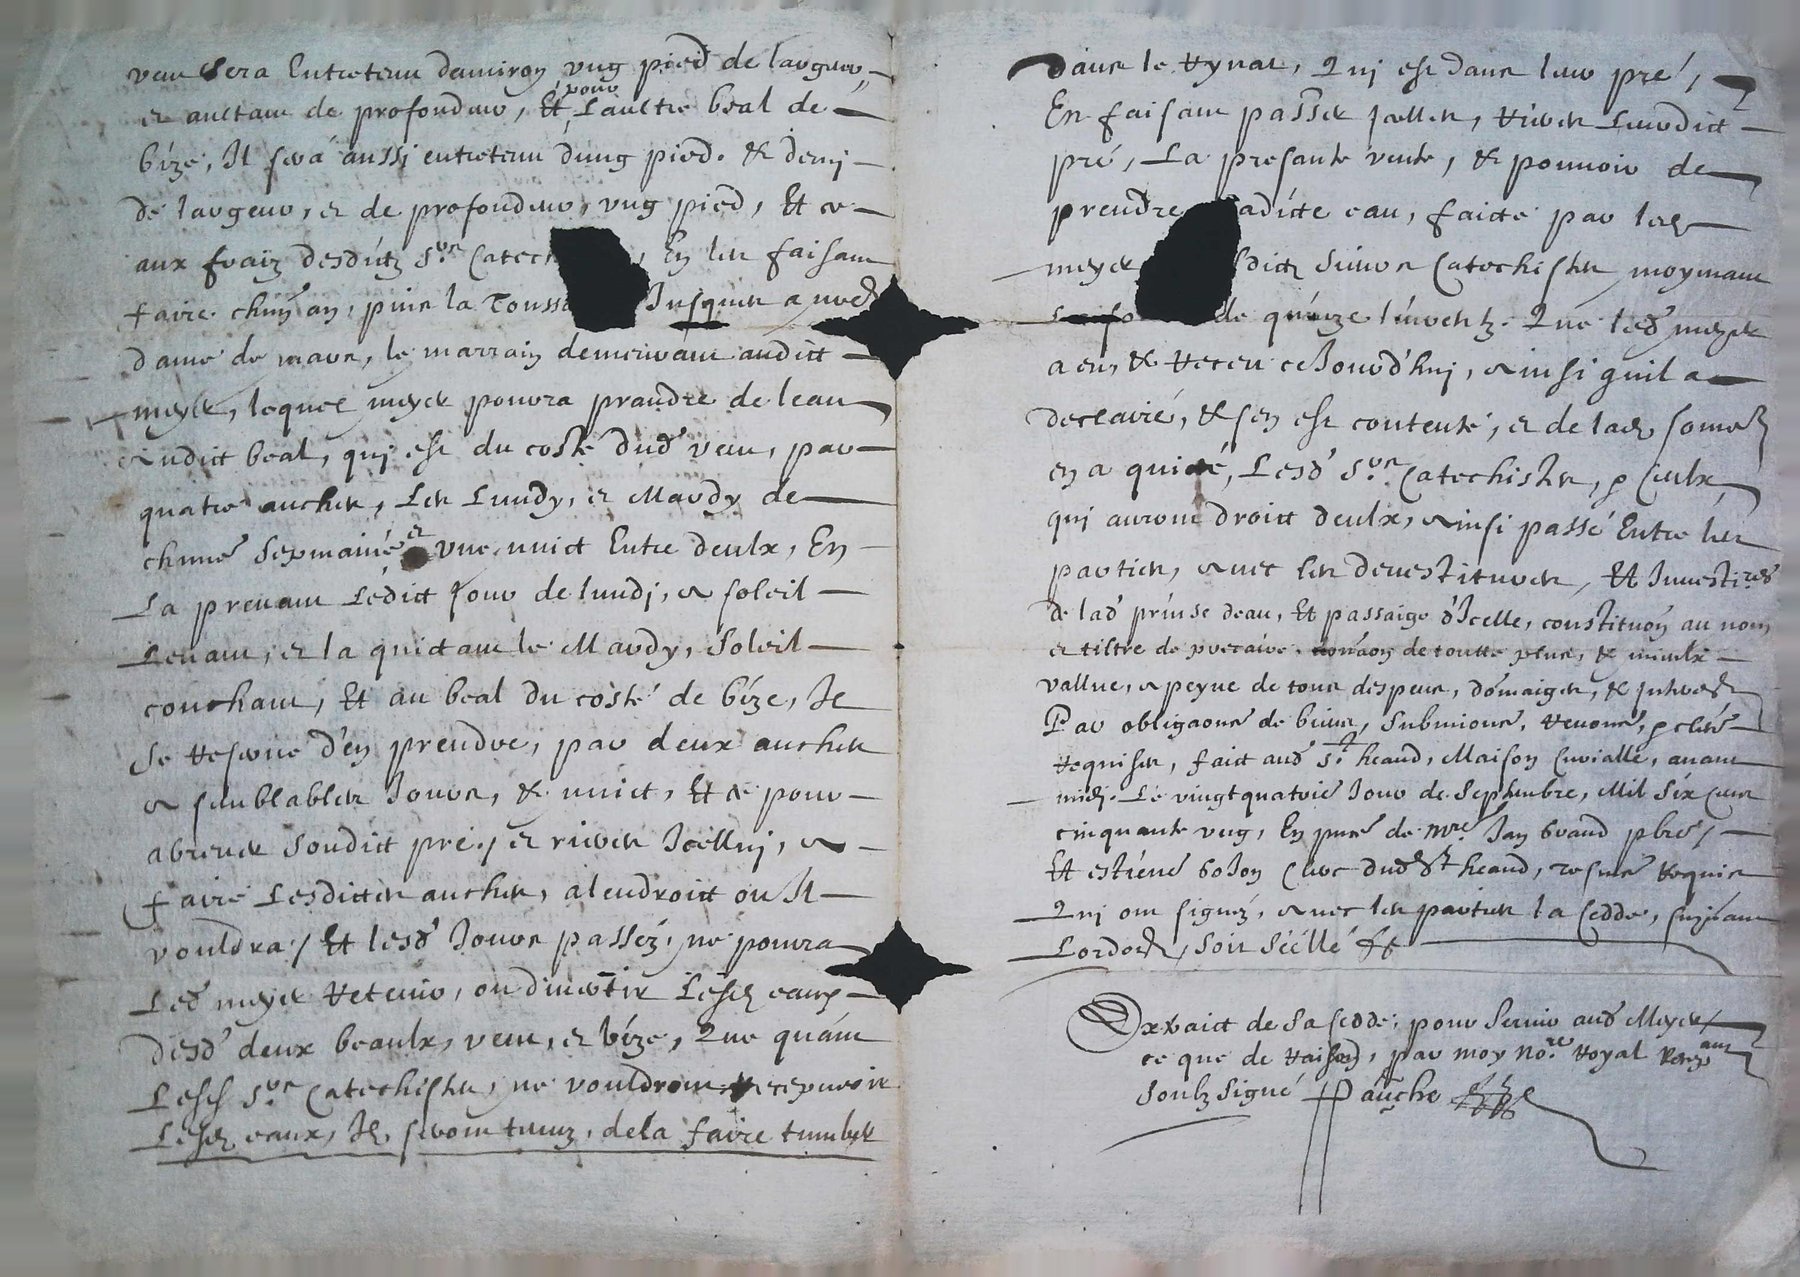 vent sera Entretenu denviron ung pied de largeur,
et aultant de profondeur, Et pour Laultre beal de
bize, Il sera aussi entretenu dung pied. & demi
de largeur, et de profondeur, ung pied, Et ce
aux fraiz desditz Srs. Catech , En les faisant
faire. chun an, puis la Touss Jusques a nred
dame de mars, le marrain demeurant audict
meyer, lequel meyer pourra prandre de leau
audict beal, qui est du costé dud vent, par
quatre auches, Les Lundy, et Mardy de
chune sepmaine, et une nuict Entre deulx, En
La prenant Ledict jour de lundi, a soleil
Levant, et la quictant le Mardy, soleil
couchant, Et au beal du costé de bize, Il
se reserve d'en prendre, par deux auches
a semblables Jours, & nuict, Et ce pour
abreuer soudict pré, et river Icelluj, a
faire Lesdittes auches, a lendroict ou Il
vouldra / Et lesd Jours passéz, ne pourra
Led meyer retenir, ou divertir Lesd eaux
desd deux beaulx, vent, et bize, Que quant
Lesd Srs Catechistes, ne vouldront recepvoir
Lesd eaux, Ilz seront tenuz, de la faire tumber
dans le rynat, Qui est dans leur pré,
En faisant passer icelles, rives Leurdict
pré, La presante vente, & pouvoir de
prendre ladicte eau, faicte par led
meyer sdictz sieurs Catechistes moyenant
La so de quinze livres tz. Que led meyer
a eu, & receu ce Jourd'huj, ainsi quil a
declairé, & sen est contenté, et de lad some
en a quicté, Lesd Srs. Catechistes, & ceulx
qui auront droict deulx, ainsi passé Entre les
parties, avec les devestitures, Et Investires
de lad prinse deau, Et passaige d'Icelle, constituon au nom
et tiltre de precaire, donaon de toutte plus, & mieulx
vallue, a peyne de tous despens, domaiges, & interestz
Par obligaons de biens, submions, renons, & clses
requises, faict aud St. heand, Maison curialle, avant
midi. Le vingtquatrie Jour de Septembre, Mil six cens
cinquante ung, En pnce de mre Jan beaud pbre,
Et estiene boJon clerc dud St heand, tesms requis
Qui ont signéz, avec les parties la cedde, suivant
Lordoe, soit scellé
Extraict de sa cedde, pour servir aud Meyer,
ce que de raison, par moy nore Royal
soubzsigné Pauche